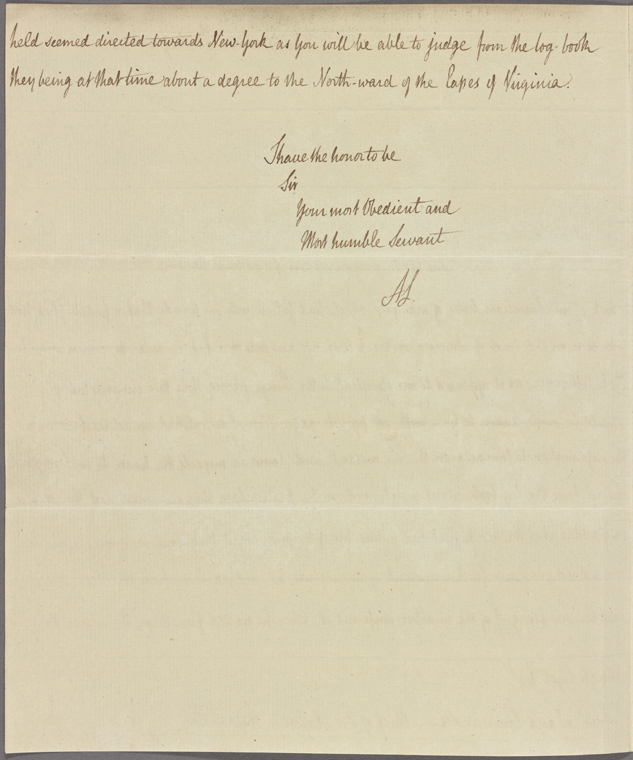 held seemed directed towards New-York as you will be able to judge from the log-book
they being at that time about a degree to the North-ward of the Capes of Virginia.
I have the honor to be
Sir
Your most Obedient and
Most humble Servant
AL.